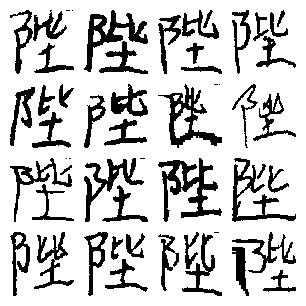 陛陛陛陛
陛陛陛陛
陛陛陛陛
陛陛陛陛